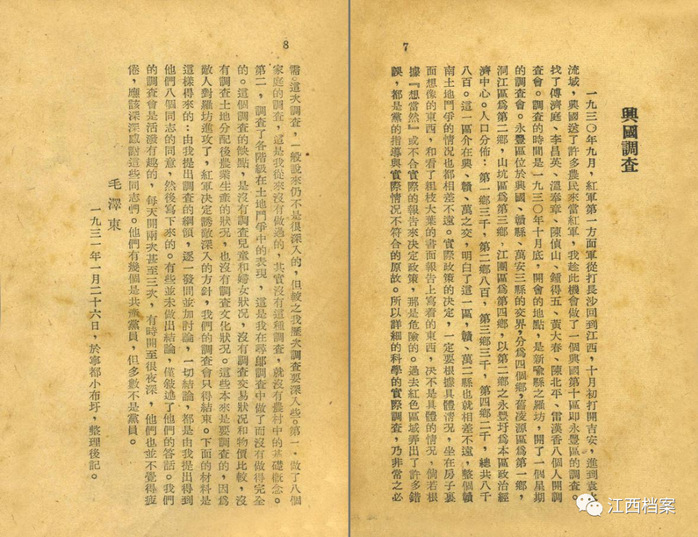 7
興國調查
一九三〇年九月，紅軍第一方面軍從打長沙回到江西，十月初打開吉安，進到袁水
流域，興國送了許多農民來當紅軍，我趁此機會做了一個興國第十區即永豐區的調查。
找了傅濟庭、李昌英、溫奉章、陳偵山、鍾得五、黃大春、陳北平、雷漢香八個人開調
查會。調查的時間是一九三〇年十月底，開會的地點，是新喻縣之羅坊，開了一個星期
的調查會。永豐區位於興國、贛縣、萬安三縣的交界，分為四個鄉，舊凌源區為第一鄉，
洞江區為第二鄉，山坑區為第三鄉，江團區為第四鄉，以第二鄉之永豐圩為本區政治經
濟中心。人口分佈：第一鄉三千，第二鄉八百，第三鄉三千，第四鄉二千，總共八千
八百。這一區介在興、贛、萬之交，明白了這一區，贛、萬二縣也就相差不遠，整個贛
南土地鬥爭的情況也都相差不遠。實際政策的決定，一定要根據具體情況，坐在房子裏
面想像的東西，和看了粗枝大葉的書面報告上寫着的東西，決不是具體的情況，倘若根
據『想當然』或不合實際的報告來決定政策，那是危險的。過去紅色區域弄出了許多錯
誤，都是黨的指導與實際情況不符合的原故。所以詳細的科學的實際調查，乃非常之必
8
需，這次調查，一般說來仍不是很深入的，但較之我歷次調查要深入些。第一，做了八個
家庭的調查，這是我從來沒有做過的，其實沒有這種調查，就沒有農村中的基礎概念。
第二，調查了各階級在土地鬥爭中的表現，這是我在尋鄔調查中做了而沒有做得完全
的。這個調查的缺點，是沒有調查兒童和婦女狀況，沒有調查交易狀況和物價比較，沒
有調查土地分配後農業生產的狀況，也沒有調查文化狀況。這些本來是要調查的，因為
敵人對羅坊進攻了，紅軍決定誘敵深入的方針，我們的調查會只得結束。下面的材料是
這樣得來的：由我提出調查的綱領，逐一發問並加討論，一切結論，都是由我提出得到
他們八個同志的同意，然後寫下來的。有些並未做出結論，僅敘述了他們的答話。我們
的調查會是活潑有趣的，每天開兩次甚至三次，有時開至很夜深，他們也並不覺得疲
倦，應該深深感謝這些同志們。他們有幾個是共產黨員，但多數不是黨員。
毛澤東
一九三一年一月二十六日，於寧都小布圩，整理後記。
江西档案